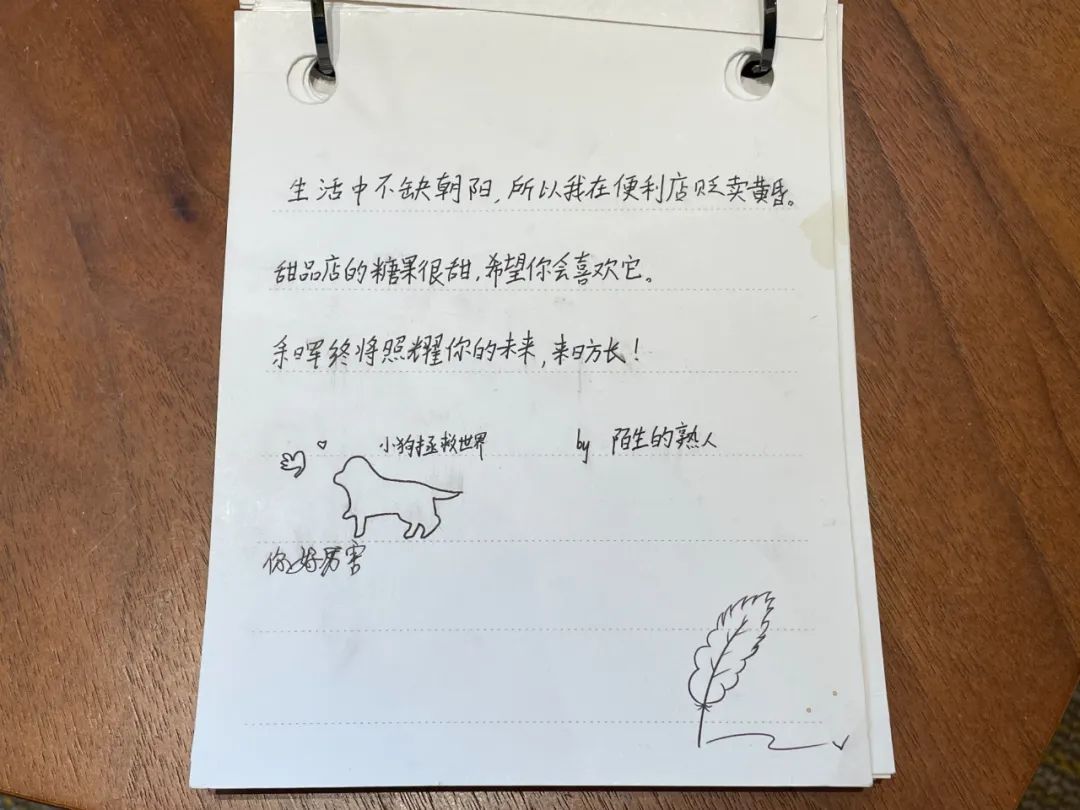 生活中不缺朝阳,所以我在便利店贬卖黄昏。
甜品店的糖果很甜,希望你会喜欢它。
余晖终将照耀你的未来,来日方长!
小狗拯救世界 by 陌生的熟人
你好厉害